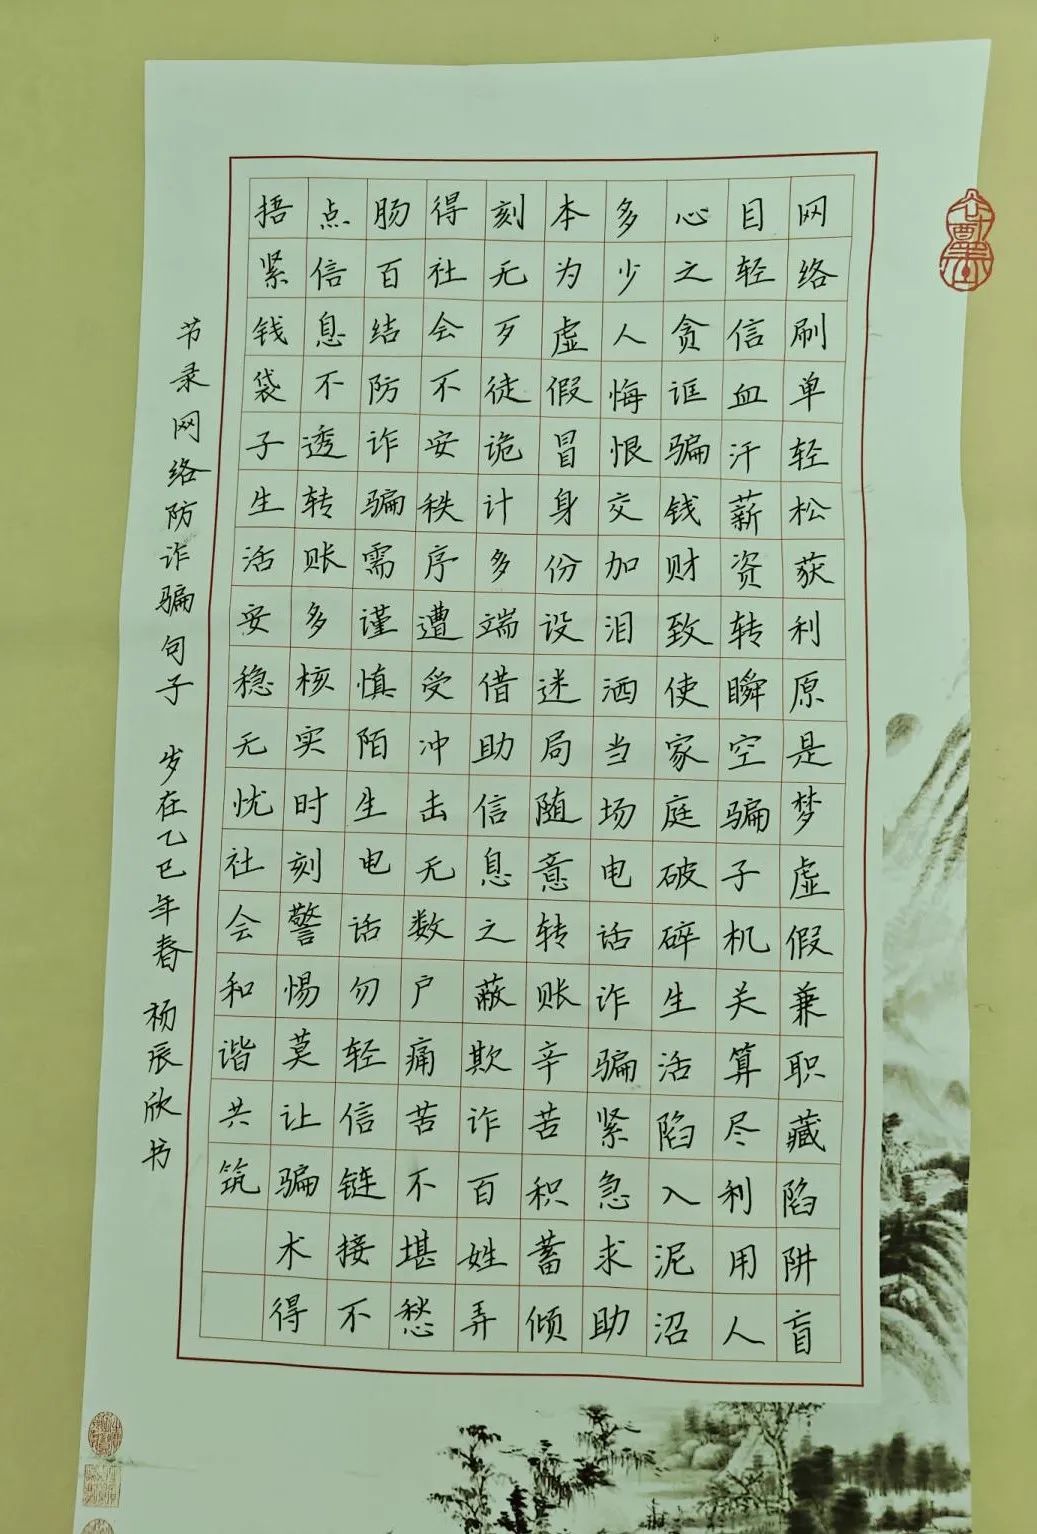 网络刷单轻松获利原是梦虚假兼职藏陷阱盲
目轻信血汗薪资转瞬空骗子机关算尽利用人
心之贪诓骗钱财致使家庭破碎生活陷入泥沼
多少人悔恨交加泪洒当场电话诈骗紧急求助
本为虚假冒身份设迷局随意转账辛苦积蓄倾
刻无歹徒诡计多端借助信息之蔽欺诈百姓弄
得社会不安秩序遭受冲击无数户痛苦不堪愁
肠百结防诈骗需谨慎陌生电话勿轻信链接不
点信息不透转账多核实时刻警惕莫让骗术得
捂紧钱袋子生活安稳无忧社会和谐共筑
节录网络防诈骗句子 岁在乙巳年春 杨辰欣书